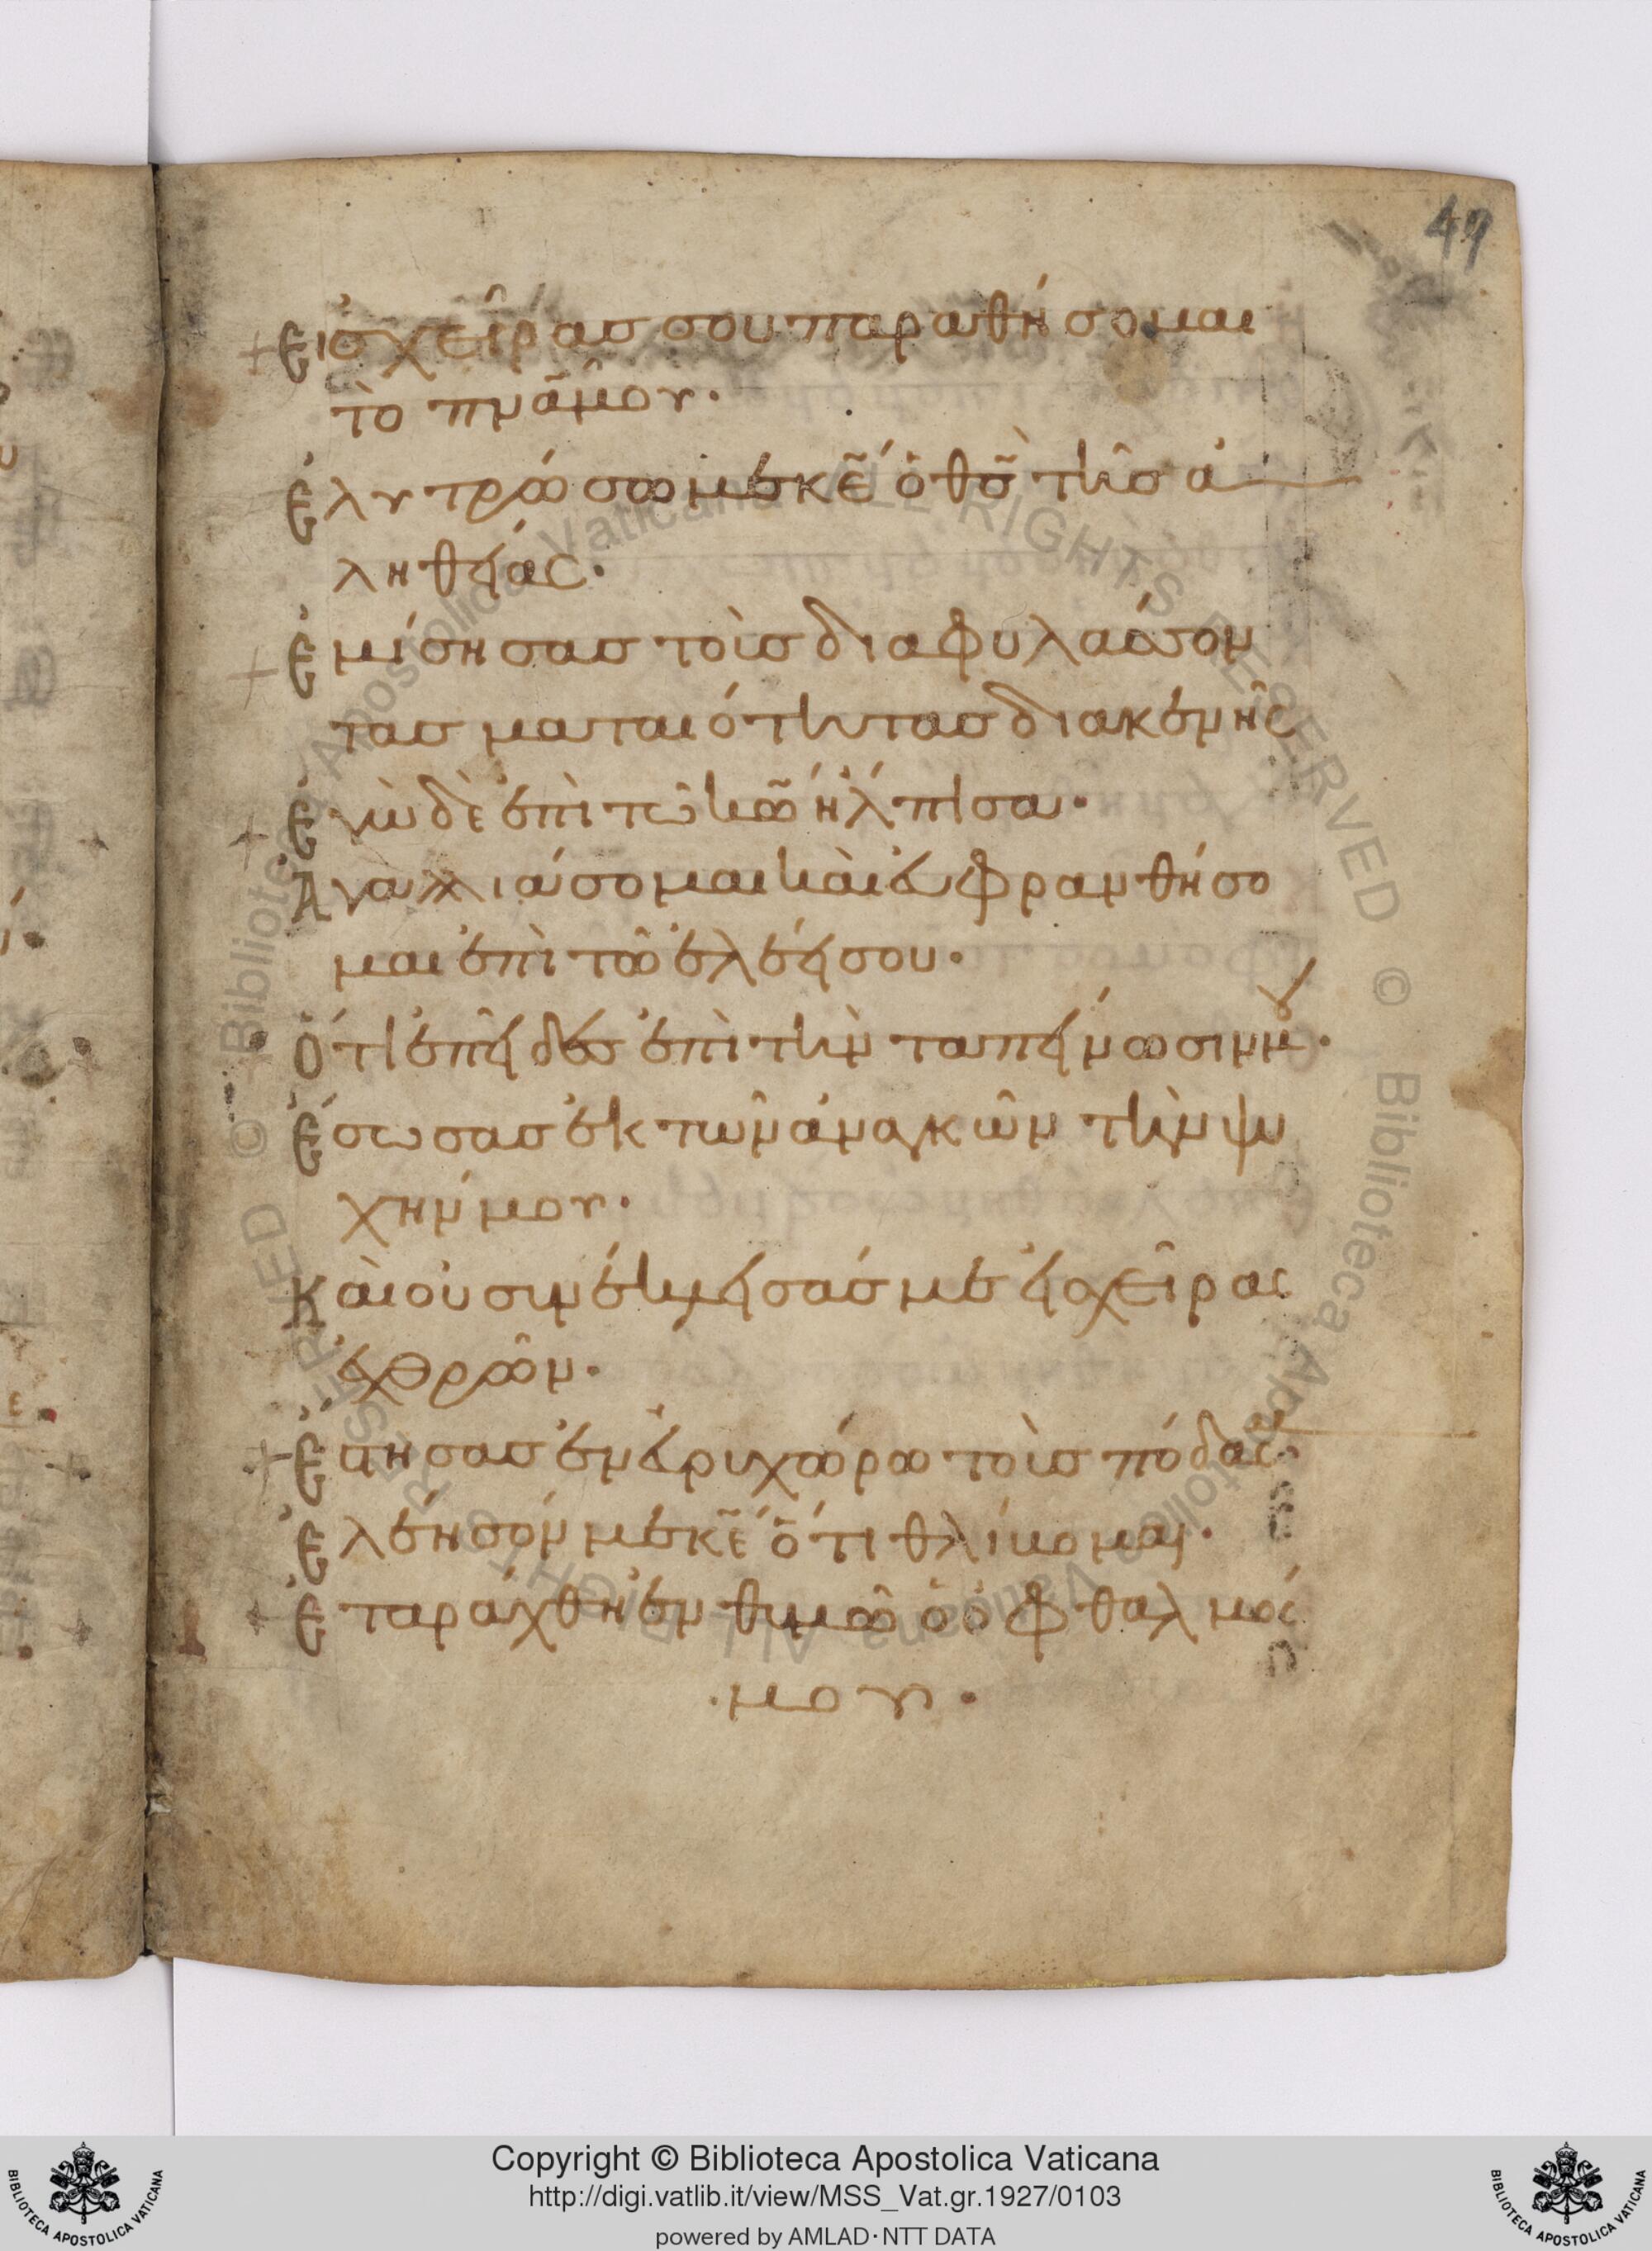 49
Εἰσ χεῖράσ σου παραθήσομαι
τὸ πν̅ᾱ μου·
Ἐλυτρώσω με κ̅ε̅ ὁ θ̅σ̅ τῆσ ἀ
ληθείας·
Ἐμίσησασ τοὺσ διαφυλάσσον
τασ ματαιότητασ διακενῆς
Ἐγὼ δὲ ἐπὶ τῶ κ̅ω̅ ἤλπισα·
Ἀγαλλιάσομαι καὶ εὐφρανθήσο
μαι ἐπὶ τῶ ἐλέει σου·
Ὅτι ἐπεῖδεσ ἐπὶ τὴν ταπείνωσιν μου·
Ἔσωσασ ἐκ τῶν ἀναγκῶν τὴν ψυ
χήν μου·
Καὶ οὐ συνέκλεισάσ με εἰσ χεῖρας
ἐχθρῶν·
Ἔστησασ ἐν εὐρυχώρω τοὺσ πόδας μου·
Ἐλέησόν με κ̅ε̅ ὅτι θλίβομαι·
Ἐταράχθη ἐν θυμῶ ὁ ὀφθαλμός
·μου·
Copyright © Biblioteca Apostolica Vaticana
http://digi.vatlib.it/view/MSS_Vat.gr.1927/0103
powered by AMLAD·NTT DATA
BIBLIOTECA APOSTOLICA VATICANA
BIBLIOTECA APOSTOLICA VATICANA